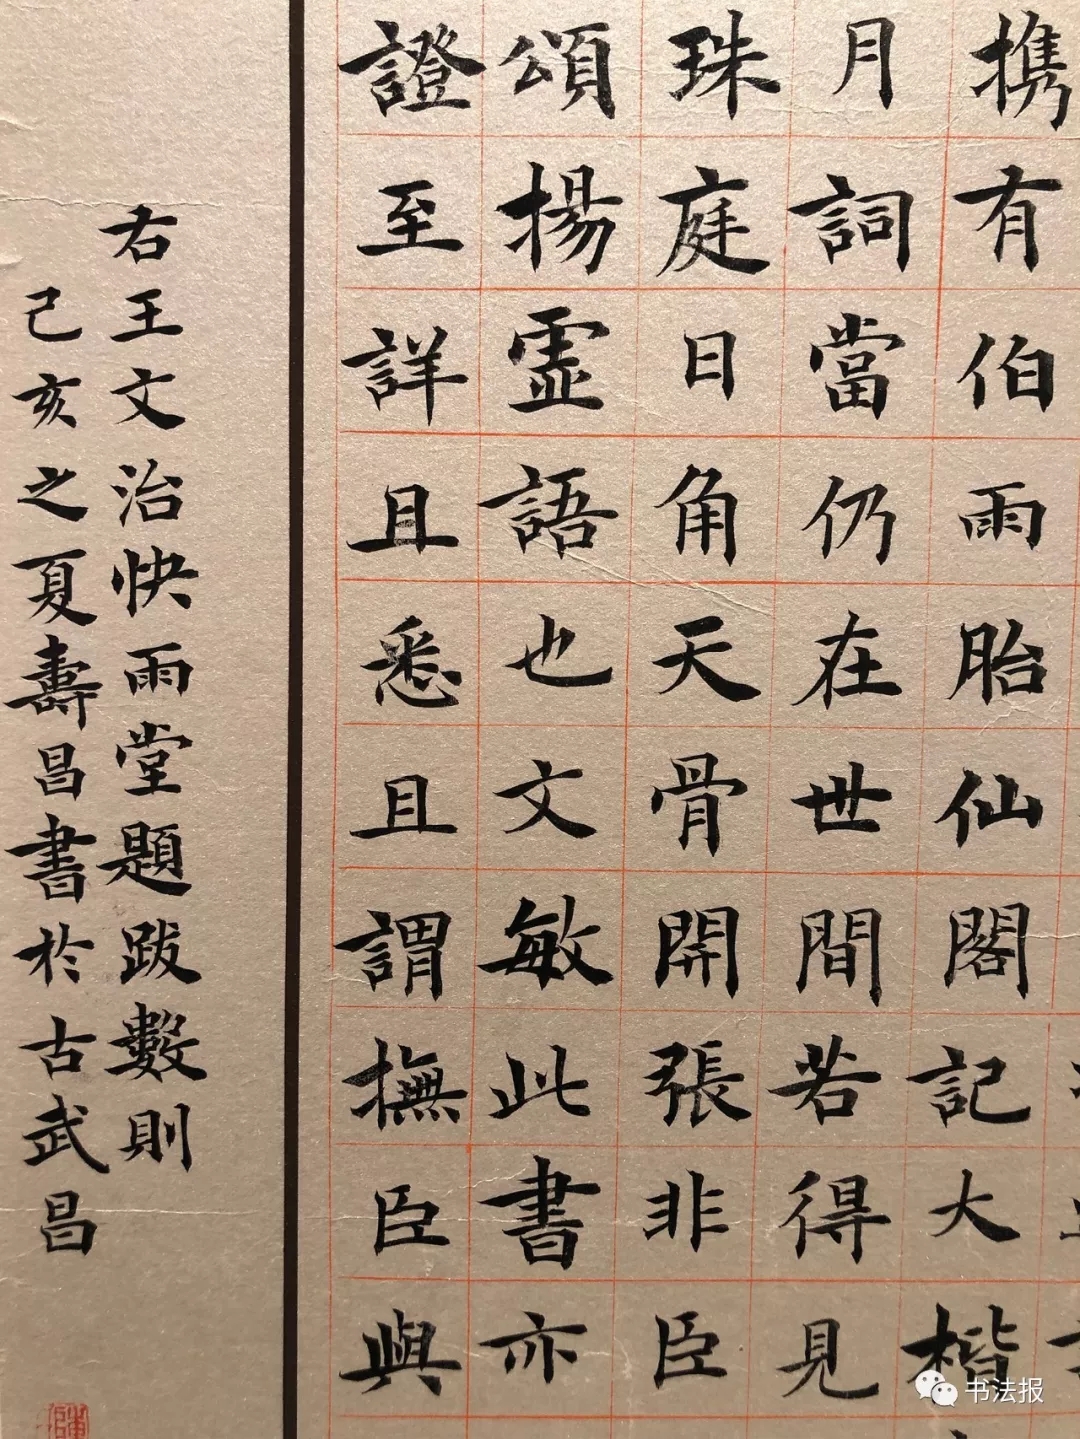 携有伯雨胎仙閣記大楷
月詞當仍在世間若得見
珠庭日角天骨開張非臣
頌揚靈語也文敏此書亦
證至詳且悉且謂撫臣與
右王文治快雨堂題跋數則
己亥之夏壽昌書於古武昌
书法报